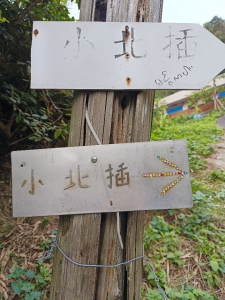 小北插
小北插